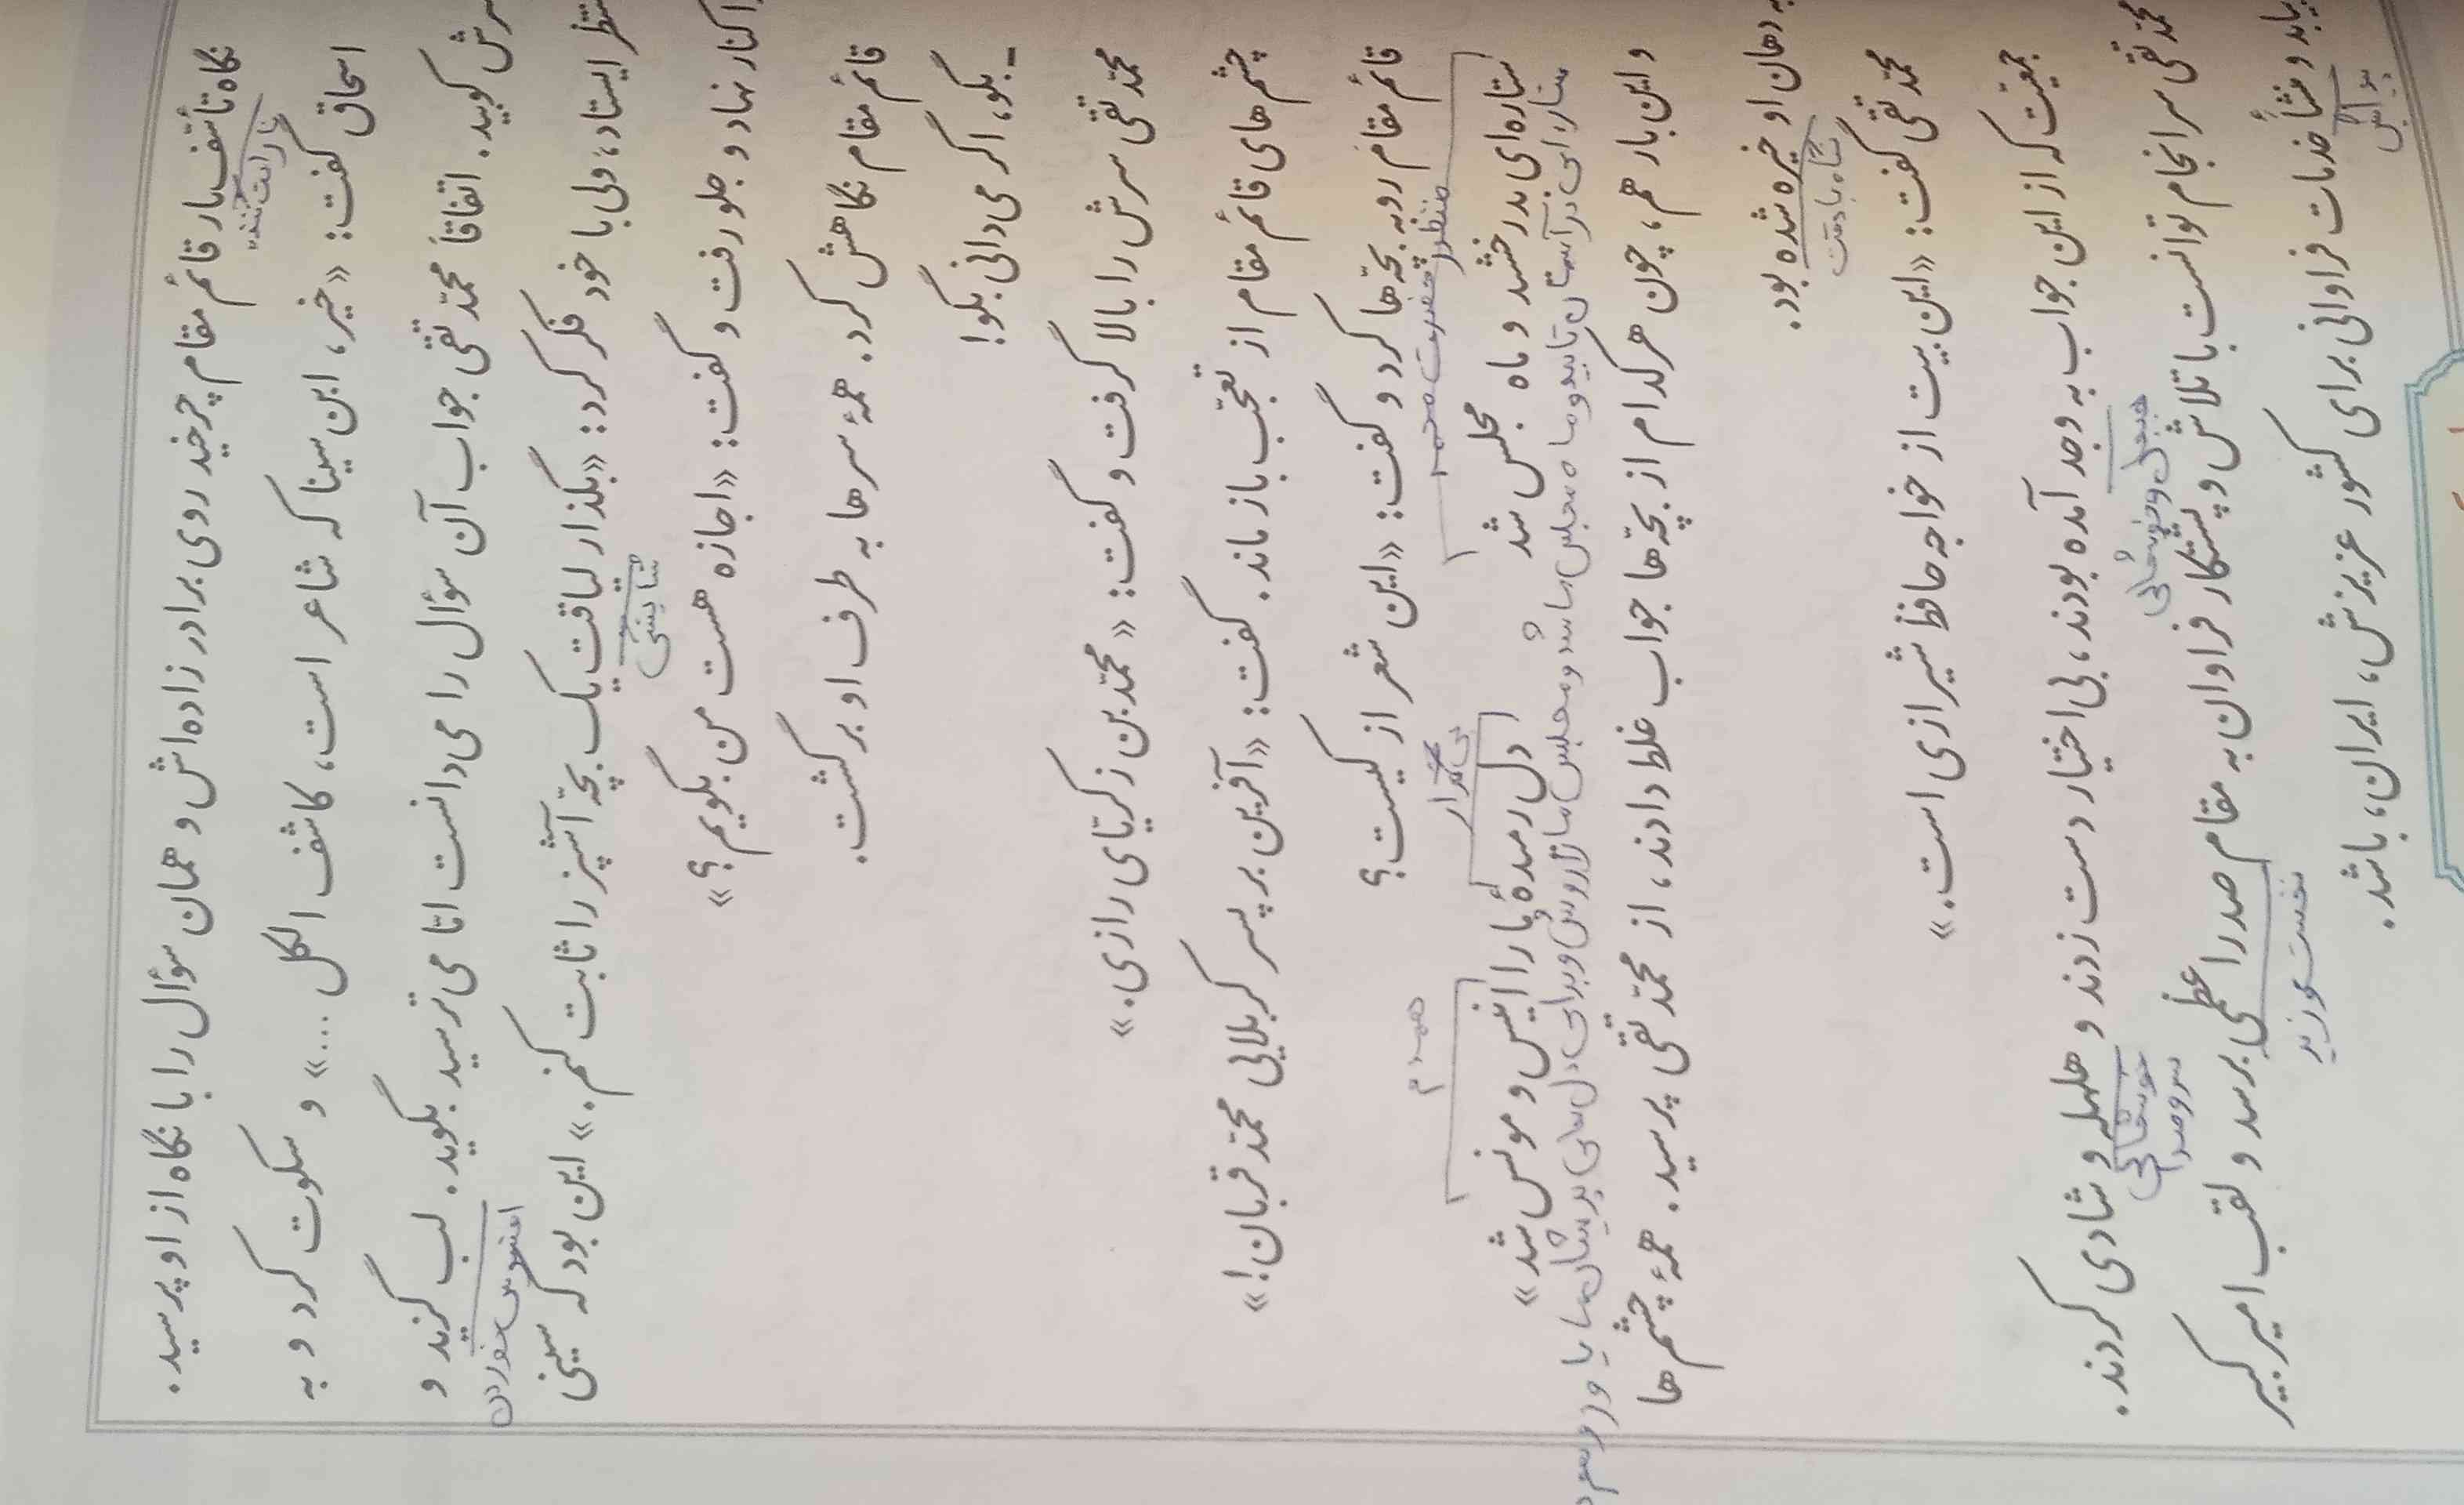 نگاه تأسّف‌بار قائم مقام چرخید روی برادرزاده‌اش و همان سؤال را با نگاه از او پرسید.
ناراحت کننده
اسحاق گفت: «خیر، ابن سینا که شاعر است، کاشف الکل ....» و سکوت کرد و به
کوبید. اتفاقاً محمّدتقی جواب آن سؤال را می‌دانست امّا می‌ترسید بگوید. لب گزید و
افسوس خوردن
ایستاد، ولی با خود فکر کرد: «بگذار لیاقت یک بچّه آشپز را ثابت کنم.» این بود که سینی
شایستگی
کنار نهاد و جلو رفت و گفت: «اجازه هست من بگویم؟»
قائم مقام نگاهش کرد. همهٔ سرها به طرف او برگشت.
- بگو، اگر می‌دانی بگو!
محمّدتقی سرش را بالا گرفت و گفت: «محمّد بن زکریّای رازی.»
چشم‌های قائم مقام از تعجّب باز ماند. گفت: «آفرین بر پسر کربلایی محمّد قربان!»
قائم مقام رو به بچّه‌ها کرد و گفت: «این شعر از کیست؟
منظور حضرت محمد
بی‌قرار
همدم
ستاره‌ای بدرخشید و ماه مجلس شد دل رمیدهٔ ما را انیس و مونس شد»
ستاره‌ای در آسمان تابید و ماه مجلس ما شد و مجلس ما را روشن و برای دل بی‌قرار ما یار و
و این بار هم، چون هر کدام از بچّه‌ها جواب غلط دادند، از محمّدتقی پرسید. همهٔ چشم‌ها
به دهان او خیره شده بود.
نگاه با دقت
محمّدتقی گفت: «این بیت از خواجه حافظ شیرازی است.»
جمعیّت که از این جواب به وجد آمده بودند، بی‌اختیار دست زدند و هلهله و شادی کردند.
هیجان و خوشحالی
خوشحالی
سر و صدا
محمّدتقی سرانجام توانست با تلاش و پشتکار فراوان به مقام صدراعظمی برسد و لقب امیرکبیر
نخست وزیر
بیابد و منشأ خدمات فراوانی برای کشور عزیزش، ایران، باشد.